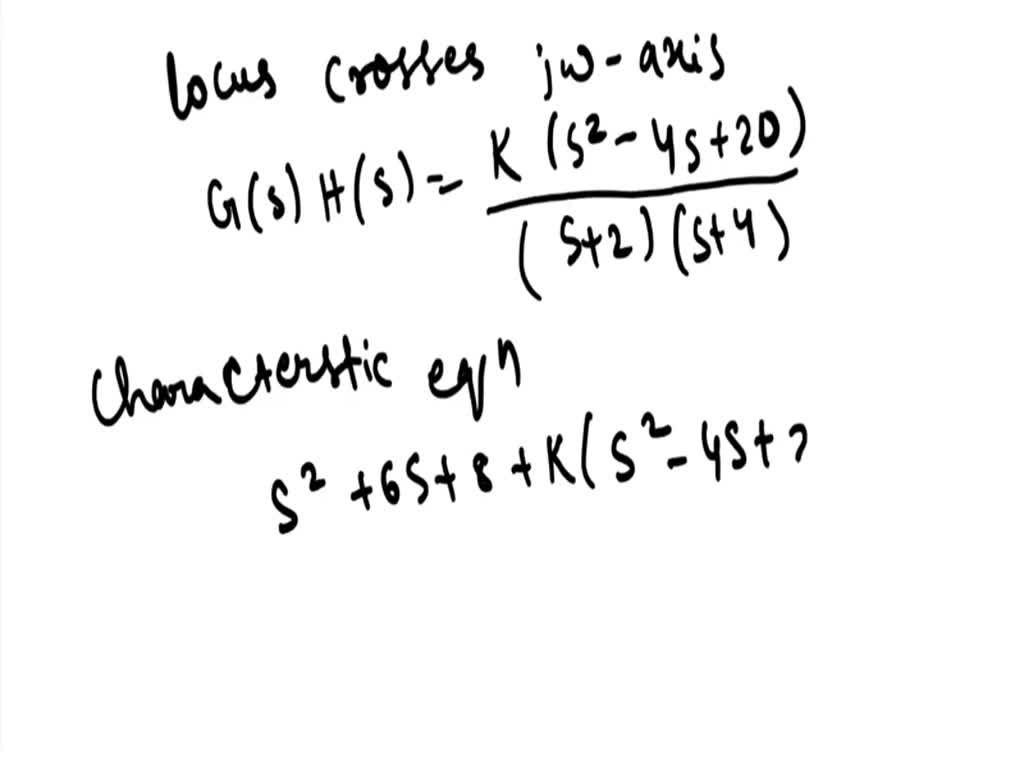 locus crosses jw-axis
G(s) H(s) = K (s² - 4s + 20)
(s+2) (s+4)
Characterstic eqn
s² + 6s + 8 + K(s² - 4s +